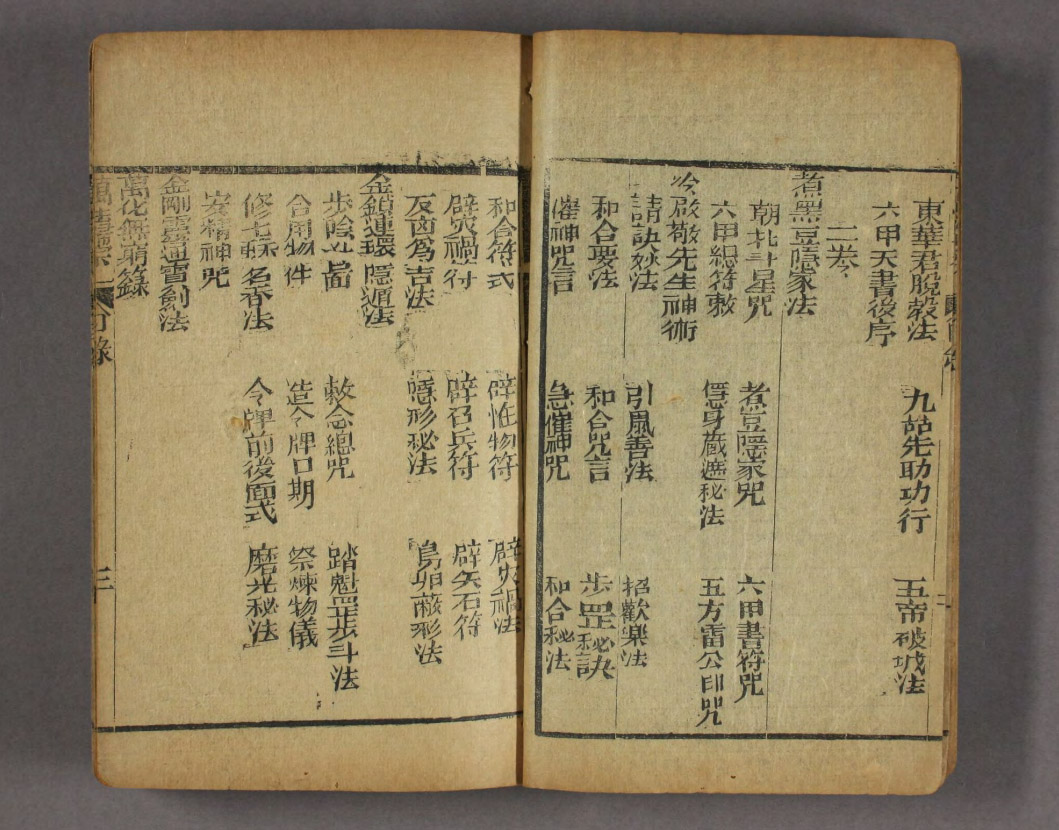 東華君脫穀法 九姑先助功行 五帝破城法
六甲天書後序
二卷
煮黑豆隱家法
朝北斗星咒 煮豆隱家咒 六甲書符咒
六甲總符敕 隱身藏遮秘法 五方雷公印咒
冷啟敬先生神術
請訣妙法 引風善法 招歡樂法
和合要法 和合咒言 步罡秘訣
催神咒言 急催神咒 和合秘法
和合符式 辟怪物符 辟災禍法
辟災禍符 辟召兵符 辟矢石符
反凶為吉法 隱形秘法 鳥卵蔽形法
金鎖連環隱遁法
步陰 敕念總咒 踏魁罡步斗法
合用物件 造令牌日期 祭煉物儀
修七 名香法 令牌前後面式 磨光秘法
安精神咒
金剛靈通寶劍法
萬化無窮錄
萬法歸宗 目錄 三